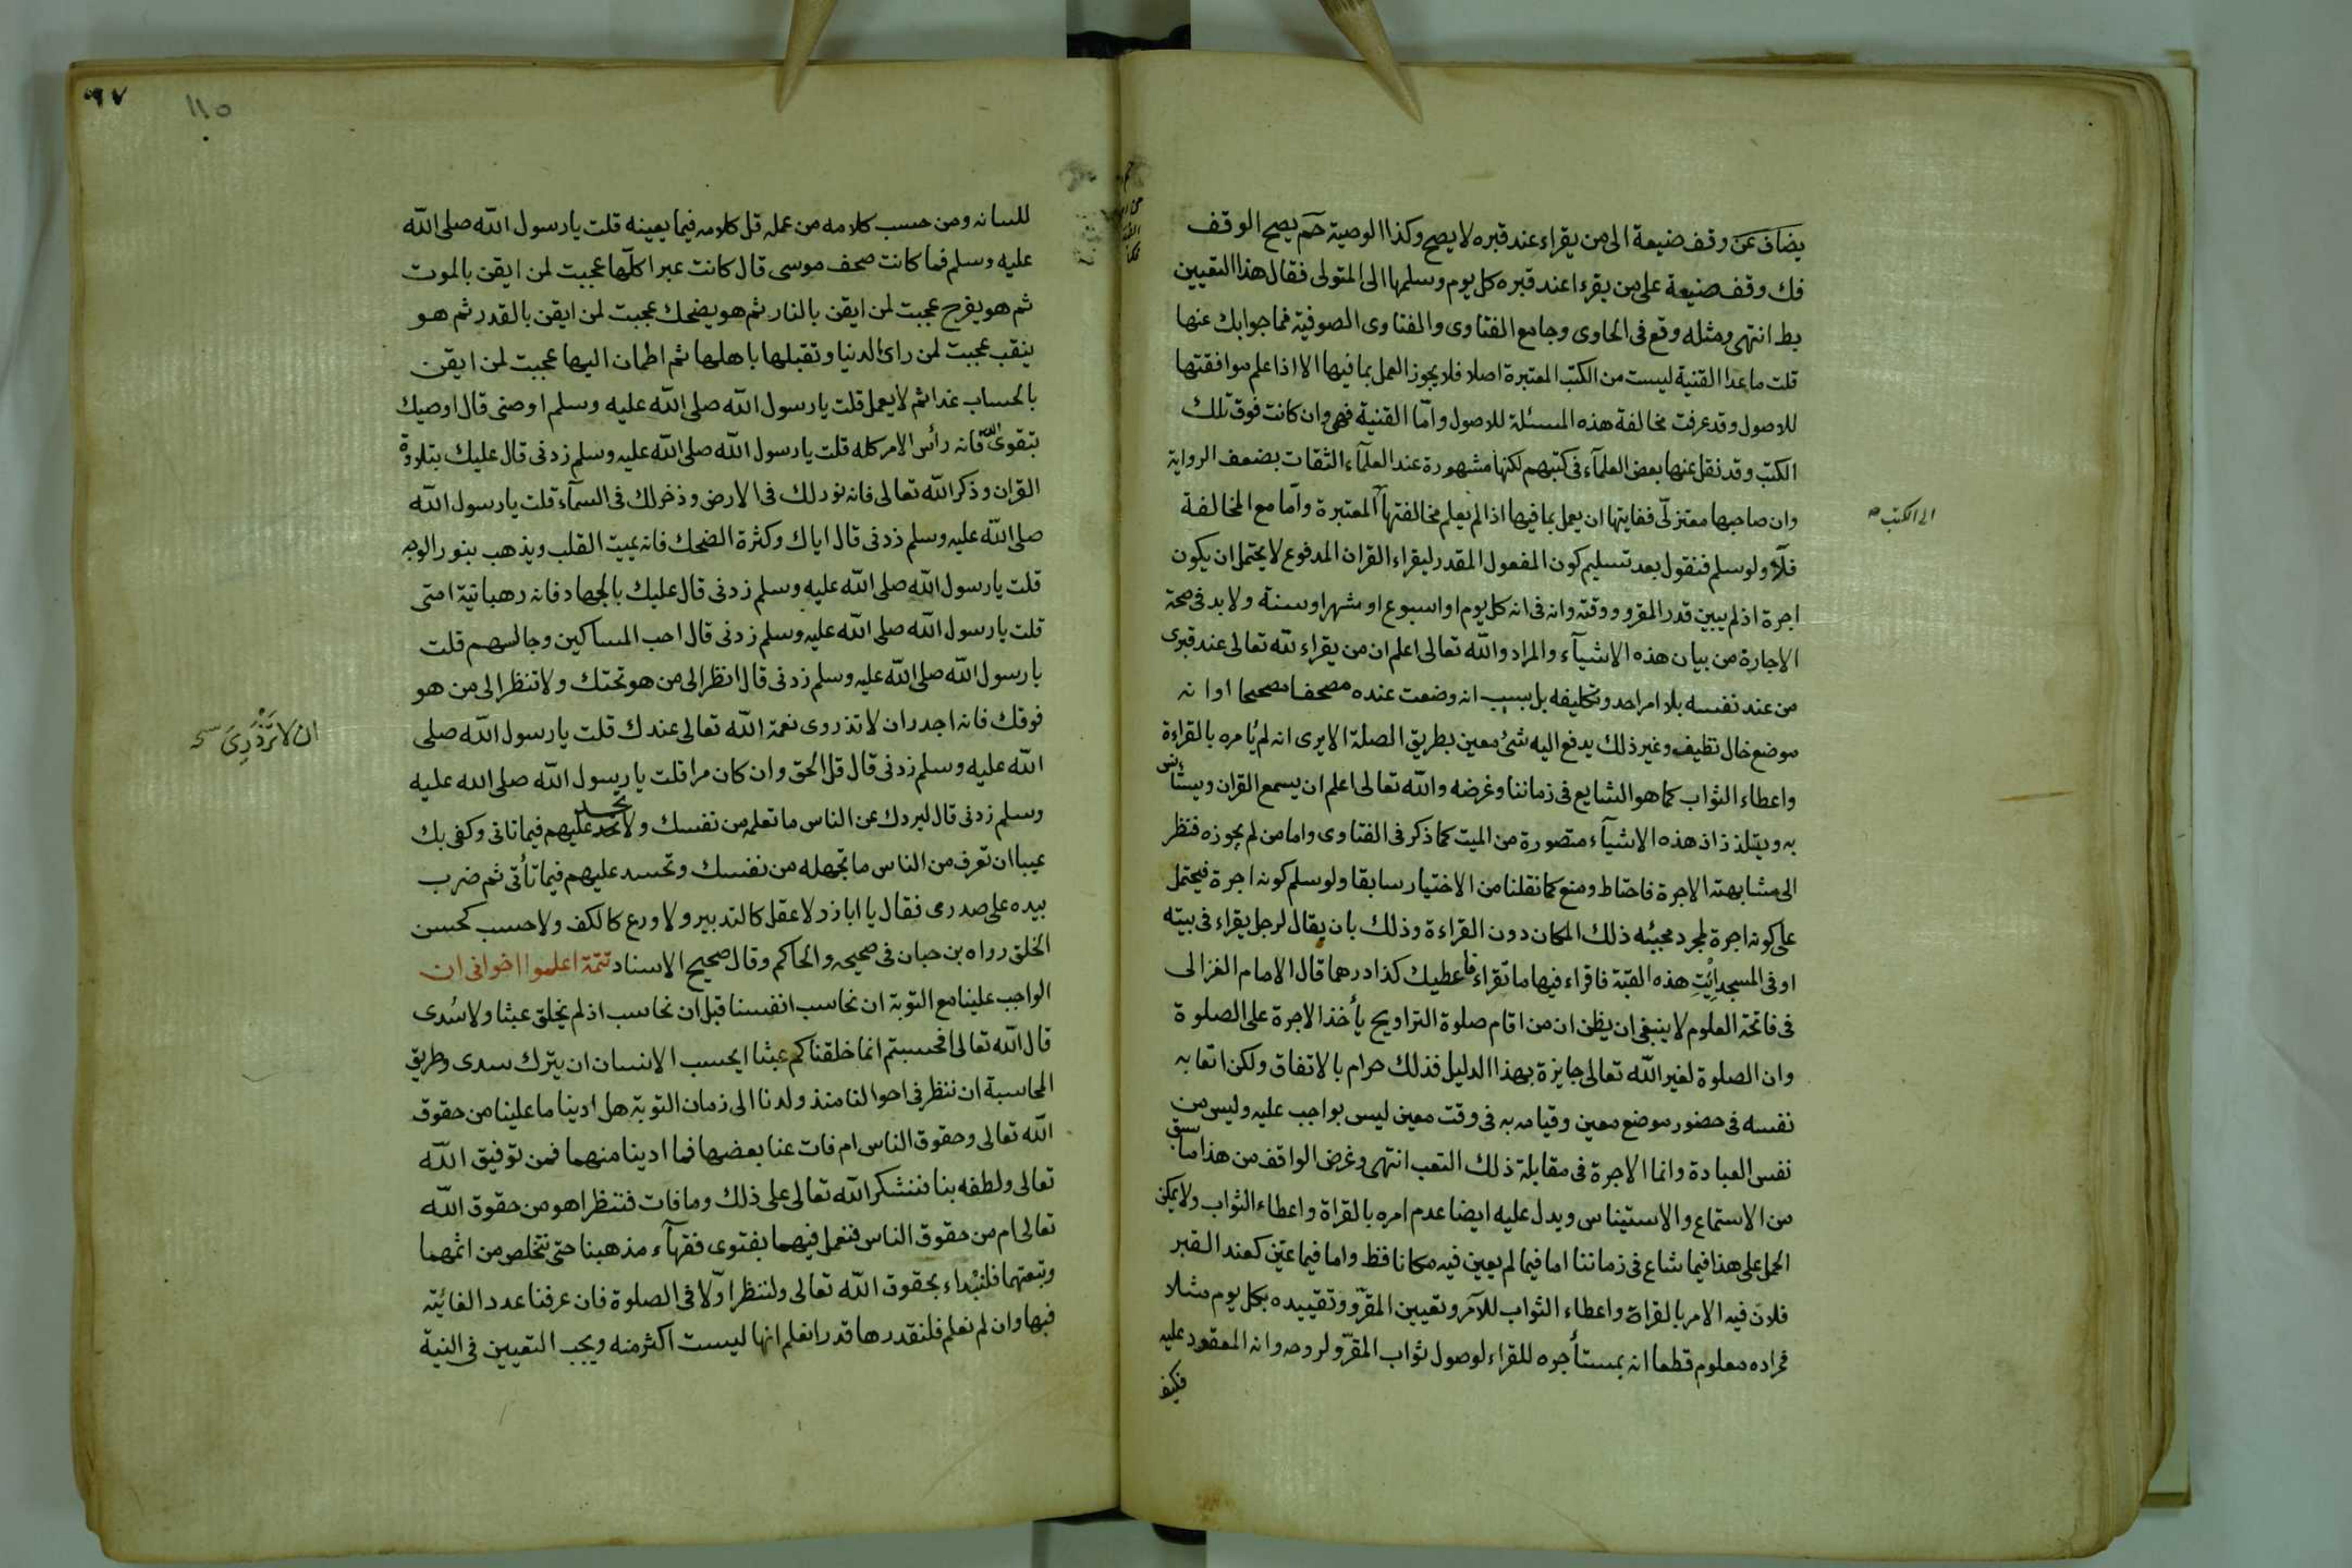 يضاف عن وقف ضيعة الى من يقراء عند قبره لا يصح وكذا الوصية حم يصح الوقف
فك وقف ضيعة على من يقرء عند قبره كل يوم وسلمها الى المتولى فقال هذا التعيين
بط انتهى ومثله وقع فى الحاوى وجامع الفتاوى والفتاوى الصوفية فما جوابك عنها
قلت ما عدا القنية ليست من الكتب المعتبرة اصلا فلا يجوز العمل بما فيها الا اذا علم موافقتها
للاصول وقد عرفت مخالفة هذه المسئلة للاصول وامّا القنية فهى وان كانت فوق تلك
الكتب وقد نقل عنها بعض العلمآء فى كتبهم لكنها مشهورة عند العلمآء الثقات بضعف الرواية
وان صاحبها معتزلىّ فغايتها ان يعمل بما فيها اذا لم يعلم مخالفتها المعتبرة وامّا مع المخالفة
الى الكتب صح
فلا ولو سلم فنقول بعد تسليم كون المفعول المقدر ليقراء القران المدفوع لا يحتمل ان يكون
اجرة اذ لم يبين قدر المقرو ووقته وانه فى انه كل يوم او اسبوع او شهر او سنة ولا بد فى صحة
الاجارة من بيان هذه الاشيآء والمراد والله تعالى اعلم ان من يقراء لله تعالى عند قبرى
من عند نفسه بلا امر احد وتكليفه بل بسبب انه وضعت عنده مصحفا صحيحا او انه
موضع خال نظيف وغير ذلك يدفع اليه شئ معين بطريق الصلة الا يرى انه لم يأمره بالقراءة
واعطاء الثواب كما هو الشايع فى زماننا وغرضه والله تعالى اعلم ان يسمع القران ويستأنس
به ويتلذذ اذ هذه الاشيآء متصورة من الميت كما ذكر فى الفتاوى واما من لم يجوزه فنظر
الى مشابهته الاجرة فاحتاط ومنع كما نقلنا من الاختيار سابقا ولو سلم كونه اجرة فيحتمل
على كونه اجرة لمجرد مجيئه ذلك المكان دون القراءة وذلك بان يقال لرجل يقراء فى بيته
او فى المسجد ايْتِ هذه القبّة فاقراء فيها ما تقراء فاعطيك كذا درهما قال الامام الغزالى
فى فاتحة العلوم لا ينبغى ان يظن ان من اقام صلوة التراويح يأخذ الاجرة على الصلوة
وان الصلوة لغير الله تعالى جايزة بهذا الدليل فذلك حرام بالاتفاق ولكن اتعابه
نفسه فى حضور موضع معين وقيامه به فى وقت معين ليس بواجب عليه وليس من
نفس العبادة وانما الاجرة فى مقابلة ذلك التعب انتهى وغرض الواقف من هذا ما سبق
من الاستماع والاستيناس ويدل عليه ايضا عدم امره بالقراة واعطاء الثواب ولا يمكن
الحمل على هذا فيما شاع فى زماننا اما فيما لم يعين فيه مكانا فظ واما فيما عيّن كعند القبر
فلان فيه الامر بالقراة واعطاء الثواب للآمر وتعيين المقرّو وتقييده بكل يوم مثلا
فمراده معلوم قطعا انه يستأجره للقراء لوصول ثواب المقرّو لروحه وانه المعقود عليه
فكيف
٩٧
١١٥
للسانه ومن حسب كلامه من عمله قل كلامه فيما يعينه قلت يا رسول الله صلى الله
عليه وسلم فما كانت صحف موسى قال كانت عبرا كلّها عجبت لمن ايقن بالموت
ثم هو يفرح عجبت لمن ايقن بالنار ثم هو يضحك عجبت لمن ايقن بالقدر ثم هو
ينقب عجبت لمن راى الدنيا وتقبلها باهلها ثم اطمان اليها عجبت لمن ايقن
بالحساب غدا ثم لا يعمل قلت يا رسول الله صلى الله عليه وسلم اوصنى قال اوصيك
بتقوى الله فانه رأس الامر كله قلت يا رسول الله صلى الله عليه وسلم زدنى قال عليك بتلاوة
القران وذكر الله تعالى فانه نور لك فى الارض وذخر لك فى السمآء قلت يا رسول الله
صلى الله عليه وسلم زدنى قال اياك وكثرة الضحك فانه يميت القلب ويذهب بنور الوجه
قلت يا رسول الله صلى الله عليه وسلم زدنى قال عليك بالجهاد فانه رهبانيّة امتى
قلت يا رسول الله صلى الله عليه وسلم زدنى قال احب المساكين وجالسهم قلت
يا رسول الله صلى الله عليه وسلم زدنى قال انظر الى من هو تحتك ولا تنظر الى من هو
فوقك فانه اجدر ان لا تذروى نعمة الله تعالى عندك قلت يا رسول الله صلى
ان لا تَزْدَرِىَ
الله عليه وسلم زدنى قال قل الحق وان كان مرا قلت يا رسول الله صلى الله عليه
وسلم زدنى قال ليردك عن الناس ما تعلمه من نفسك ولا تجد عليهم فيما تاتى وكفى بك
عيبا ان تعرف من الناس ما تجهله من نفسك وتحسد عليهم فيما تأتى ثم ضرب
بيده على صدرى فقال يا اباذر لا عقل كالتدبير ولا ورع كالكف ولا حسب كحسن
الخلق رواه بن حبان فى صحيحه والحاكم وقال صحيح الاسناد تتمة اعلموا اخوانى ان
الواجب علينا مع التوبة ان نحاسب انفسنا قبل ان نحاسب اذ لم يخلق عبثا ولا سُدى
قال الله تعالى افحسبتم انما خلقناكم عبثا ايحسب الانسان ان يترك سدى وطريق
المحاسبة ان ننظر فى احوالنا منذ ولدنا الى زمان التوبة هل ادينا ما علينا من حقوق
الله تعالى وحقوق الناس ام فات عنا بعضها فما ادينا منهما فمن توفيق الله
تعالى ولطفه بنا فنشكر الله تعالى على ذلك وما فات فننظر اهو من حقوق الله
تعالى ام من حقوق الناس فنعمل فيهما بفتوى فقهآء مذهبنا حتى نتخلص من اثمهما
وتبعتهما فلنبْداء بحقوق الله تعالى ولننظر اوّلا فى الصلوة فان عرفنا عدد الفائتة
فبها وان لم نعلم فلنقدرها قدرا نعلم انها ليست اكثر منه ويجب التعيين فى النية